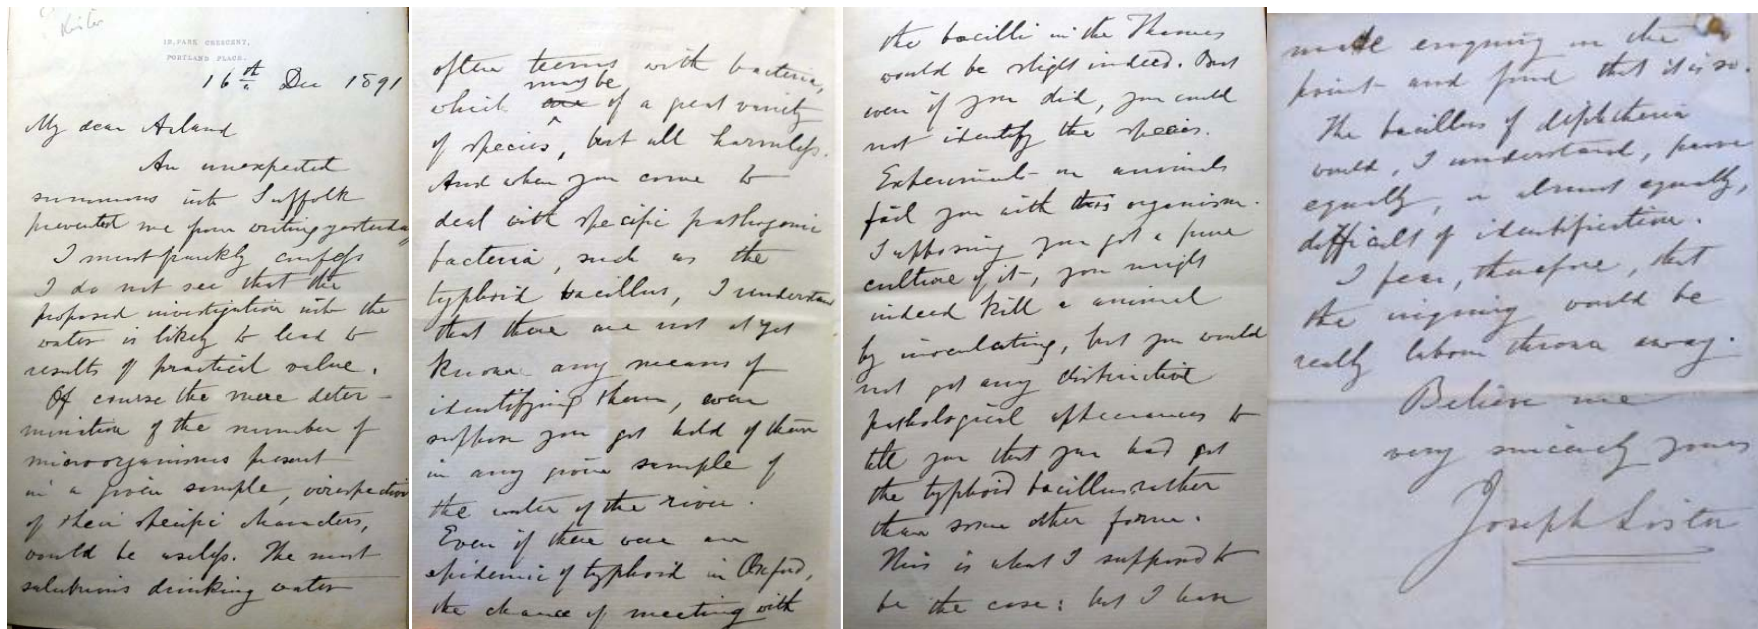 Lister
12, PARK CRESCENT,
PORTLAND PLACE.
16th Dec 1891
My dear Acland
An unexpected
summons into Suffolk
prevented me from writing yesterday
I must frankly confess
I do not see that the
proposed investigation into the
water is likely to lead to
results of practical value.
Of course the mere deter-
mination of the number of
microorganisms present
in a given sample, irrespective
of their specific characters,
would be useless. The most
salubrious drinking water
often teems with bacteria,
may be
which are of a great variety
of species, but all harmless.
And when you come to
deal with specific pathogenic
bacteria, such as the
typhoid bacillus, I understand
that there are not as yet
known any means of
identifying them, even
suppose you got hold of them
in any given sample of
the water of the river.
Even if there were an
epidemic of typhoid in Oxford,
the chance of meeting with
the bacilli in the Thames
would be slight indeed. But
even if you did, you could
not identify the species.
Experiments on animals
fail you with this organism.
Supposing you got a pure
culture of it, you might
indeed kill a animal
by inoculating, but you would
not get any distinctive
pathological appearances to
tell you that you had got
the typhoid bacillus rather
than some other form.
This is what I supposed to
be the case: but I have
made enquiry on the
point and find that it is so.
The bacillus of diphtheria
would, I understand, prove
equally, or almost equally,
difficult of identification.
I fear, therefore, that
the inquiry would be
really labour thrown away.
Believe me
very sincerely yours
Joseph Lister